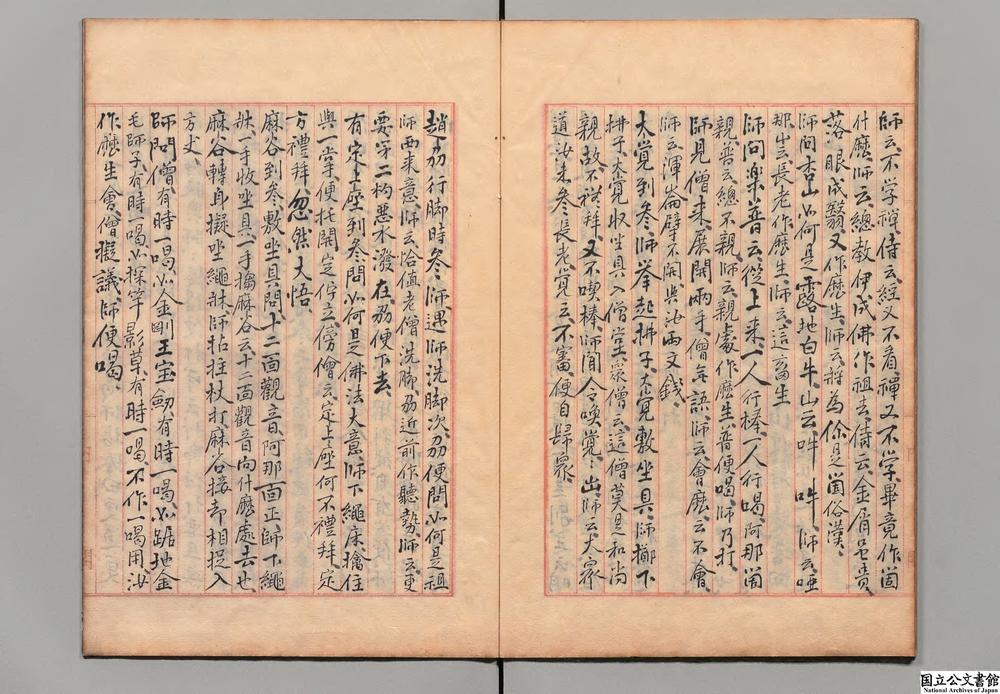 師云、不学禅、侍云、経又不看、禅又不学、畢竟作箇
什麼、師云、總教伊成佛作祖去、侍云、金屑虽貴、
落眼成翳、又作麼生、師云、将為你是箇俗漢、
師問杏山、如何是露地白牛、山云、吽吽、師云、唖
那、山云、長老作麼生、師云、這畜生
師問楽普云、從上来、一人行棒、一人行喝、阿那箇
親、普云、總不親、師云、親處作麼生、普便喝、師乃打、
師見僧来、展開兩手、僧無語、師云、會麼、云、不會、
師云、渾崙擘不開、與汝兩文錢、
大覚到参、師挙起拂子、大覚敷坐具、師擲下
拂子、大覚収坐具、入僧堂、衆僧云、這僧莫是和尚
親故、不礼拝、又不喫棒、師聞、令喚覚、々出、師云、大衆
道、汝未参長老、覚云、不審、便自歸衆、
趙州行脚時参師、遇師洗脚次、州便問、如何是祖
師西来意、師云、恰值老僧洗脚、州近前作聽勢、師云、更
要第二杓悪水潑在、州便下去、
有定上座、到参問、如何是佛法大意、師下繩床、擒住
與一掌、便托開、定佇立、傍僧云、定上座、何不禮拜、定
方禮拜、忽然大悟、
麻谷到参、敷坐具問、十二面觀音、阿那面正、師下繩
牀、一手収坐具、一手搊麻谷云、十二面觀音、向什麼處去也
麻谷轉身、擬坐繩牀、師拈拄杖打、麻谷接却、相捉入
方丈、
師問僧、有時一喝、如金剛王宝劔、有時一喝、如踞地金
毛師子、有時一喝、如探竿影草、有時一喝、不作一喝用、汝
作麼生會、僧擬議、師便喝、
国立公文書館
National Archives of Japan